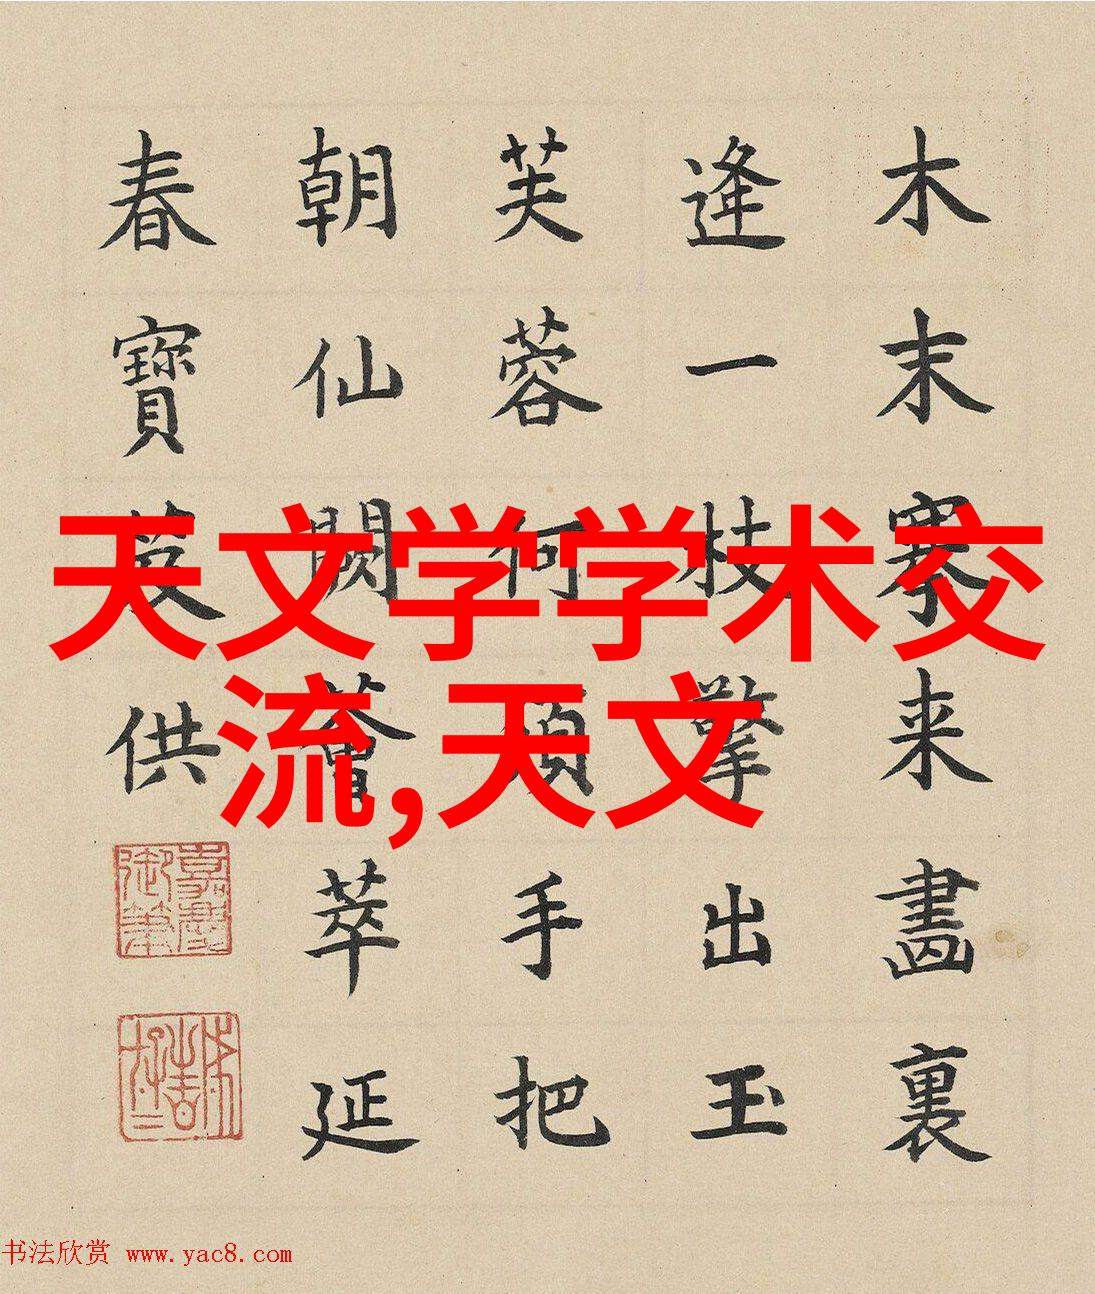 木末搴来畫裏
逢一枝擎出玉
芙蓉何須手把
朝仙闕薈萃延
春寶笈供
嘉慶御筆
天文学学术交
流,天文
书法欣赏 www.yac8.com